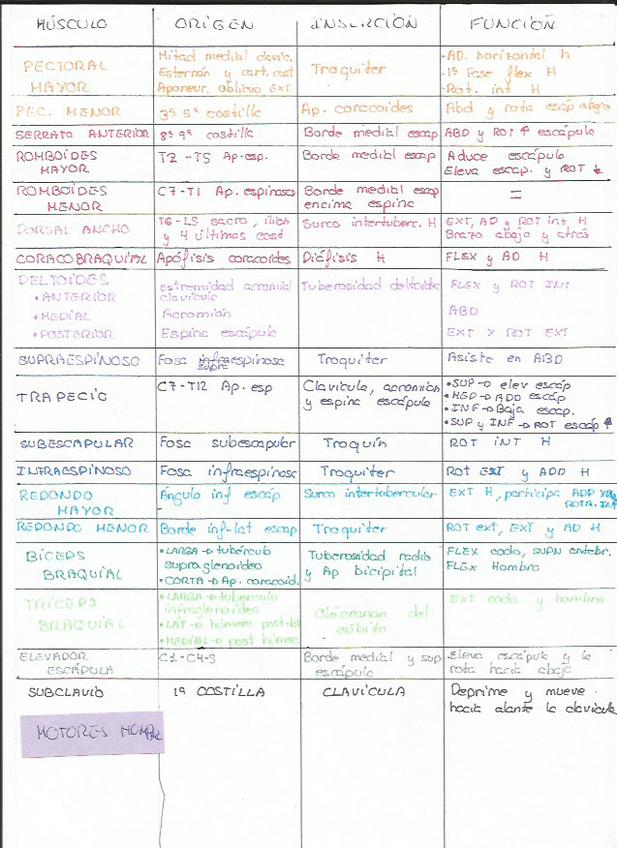 MÚSCULO ORÍGEN INSERCIÓN FUNCIÓN
PECTORAL MAYOR
Mitad medial clavic.
Esternón y cart. cost
Aponeur. oblicuo EXT
Troquiter
-AD. horizontal h
-1ª Fase flex H
-Rot. int H
PEC. MENOR 3ª 5ª costilla Ap. coracoides Abd y rota escáp abajo
SERRATO ANTERIOR 8ª 9ª costilla Borde medial escap ABD y ROT ↑ escápula
ROMBOIDES MAYOR
T2 - T5 Ap. esp.
Borde medial escap
Aduce escápula
Eleva escap. y ROT ↓
ROMBOIDES MENOR
C7-T1 Ap. espinosas
Borde medial escap
encima espina
=
DORSAL ANCHO
T6-L5 sacro, ilion
y 4 últimas cost
Surco intertuberc. H
EXT, AD y ROT int H
Brazo abajo y atrás
CORACOBRAQUIAL Apófisis coracoides Diáfisis H FLEX y AD H
DELTOIDES
• ANTERIOR
• MEDIAL
• POSTERIOR
Extremidad acromial
clavícula
Acromion
Espina escápula
Tuberosidad deltoidea
FLEX y ROT INT
ABD
EXT X ROT EXT
SUPRAESPINOSO
Fosa infraespinosa
supra
Troquiter
Asiste en ABD
TRAPECIO
C7-T12 Ap. esp
Clavicula, acromion
y espina escápula
• SUP → elev escáp
• MED → ADD escáp
• INF → Baja escap.
• SUP y INF → ROT escáp ↑
SUBESCAPULAR Fosa subescapular Troquín ROT INT H
INFRAESPINOSO Fosa infraespinosa Troquiter Rot EXT y ADD H
REDONDO MAYOR
Ángulo inf escáp
Surco intertubercular
EXT H, participa ADD y
ROTA. INT
REDONDO MENOR Borde inf-lat escap Troquiter ROT ext, EXT y AD H
BÍCEPS BRAQUIAL
• LARGA → tubércub
supraglenoideo
• CORTA → Ap. coracoid.
Tuberosidad radio
y Ap bicipital
FLEX codo, SUPN antebr.
FLEX Hombro
TRÍCEPS BRAQUIAL
• LARGA → tuberculo
infraglenoideo
• LAT → húmero post-lat
• MEDIAL → post húmero
Olécranon del
cúbito
EXT codo y hombro
ELEVADOR ESCÁPULA
C1-C4-5
Borde medial y sup
escápula
Eleva escápula y la
rota hacia abajo
SUBCLAVIO
1ª COSTILLA
CLAVICULA
Deprime y mueve
hacia alante la clavicula
MOTORES HOMBRO